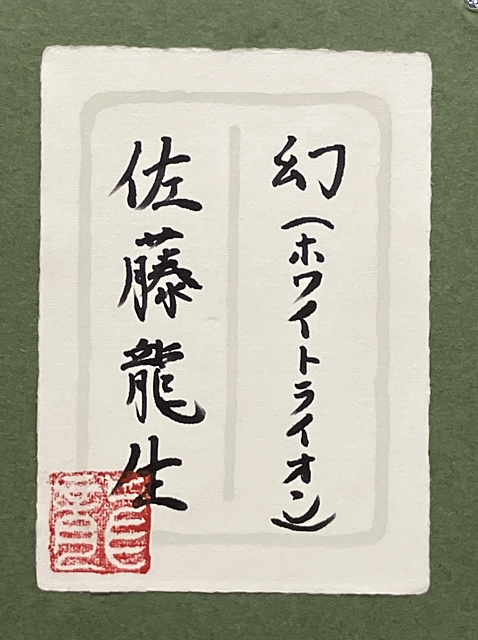 幻(ホワイトライオン)
佐藤龍生
龍